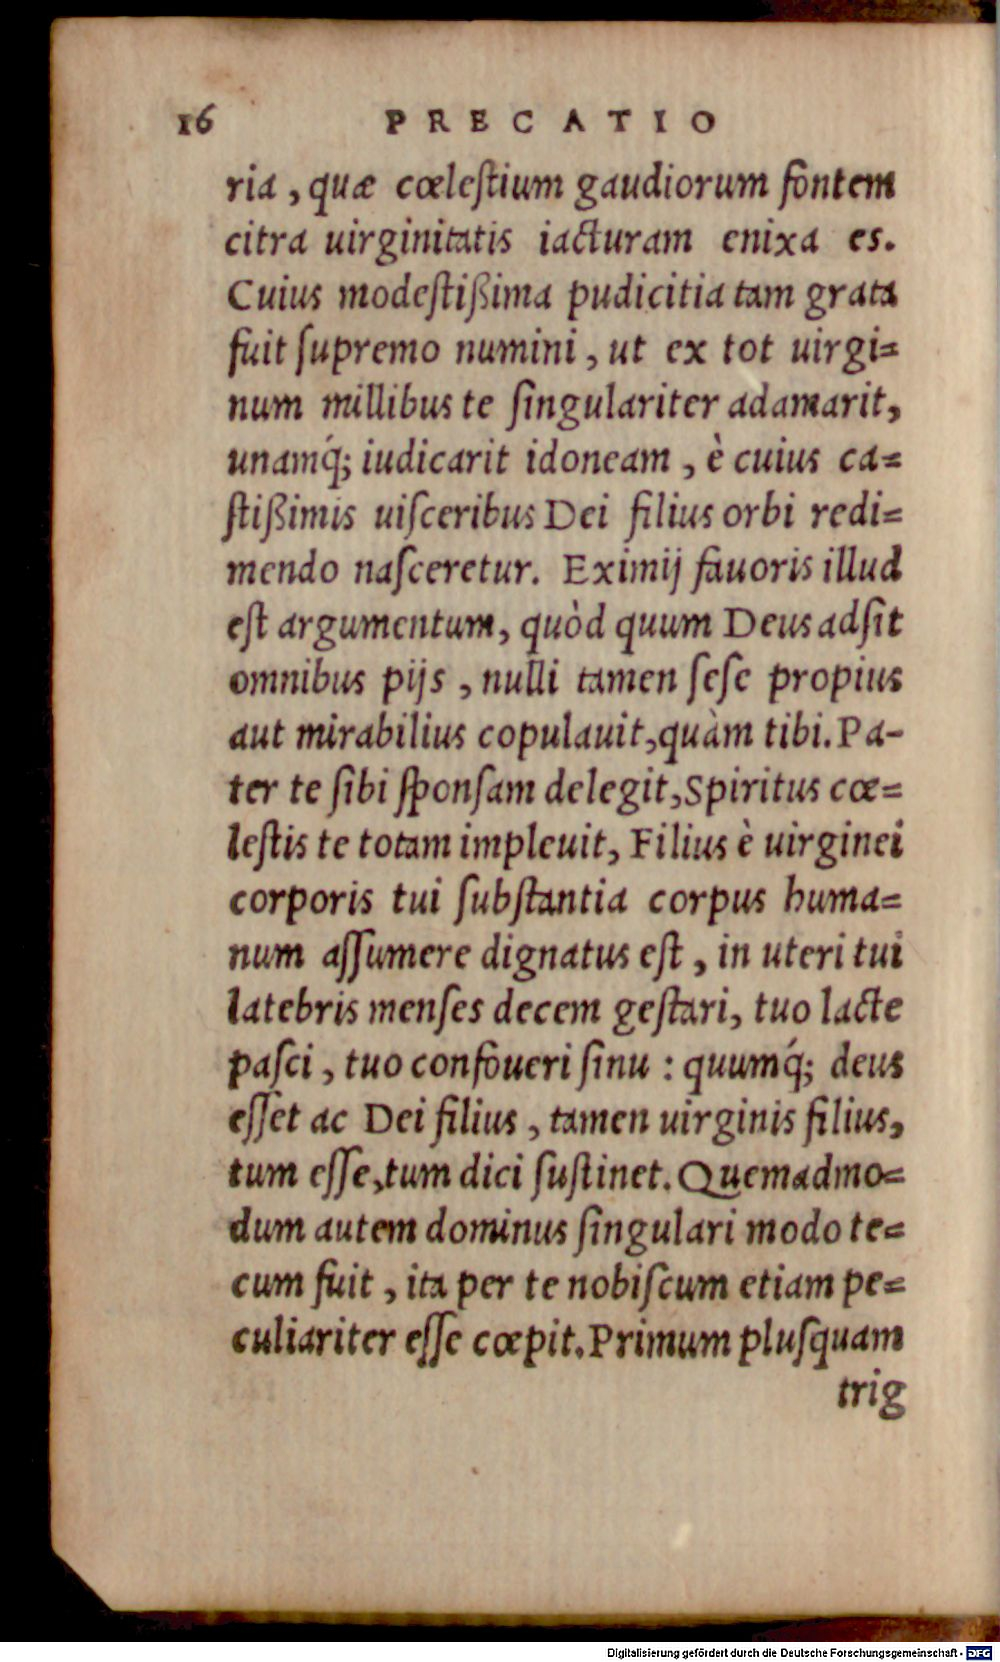 16 PRECATIO
ria, quæ cœleſtium gaudiorum fontem
citra uirginitatis iacturam enixa es.
Cuius modeſtißima pudicitia tam grata
fuit ſupremo numini, ut ex tot uirgi=
num millibus te ſingulariter adamarit,
unamq́; iudicarit idoneam, è cuius ca=
ſtißimis uiſceribus Dei filius orbi redi=
mendo naſceretur. Eximij fauoris illud
eſt argumentum, quòd quum Deus adſit
omnibus pijs, nulli tamen ſeſe propius
aut mirabilius copulauit, quàm tibi. Pa-
ter te ſibi ſponſam delegit, Spiritus cœ=
leſtis te totam impleuit, Filius è uirginei
corporis tui ſubſtantia corpus huma=
num aſſumere dignatus eſt, in uteri tui
latebris menſes decem geſtari, tuo lacte
paſci, tuo confoueri ſinu : quumq́; deus
eſſet ac Dei filius, tamen uirginis filius,
tum eſſe, tum dici ſuſtinet. Quemadmo=
dum autem dominus ſingulari modo te=
cum fuit, ita per te nobiſcum etiam pe=
culiariter eſſe cœpit. Primum pluſquam
trig
Digitalisierung gefördert durch die Deutsche Forschungsgemeinschaft - DFG